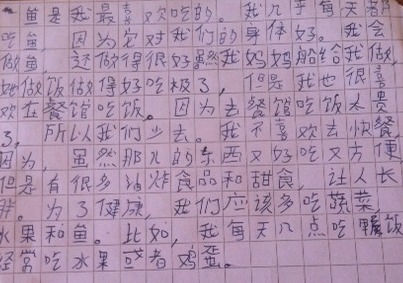 鱼是我最喜欢吃的。我几乎每天都
吃鱼，因为它对我们的身体好。我会
做鱼，这做得很好虽然我妈妈船给我做，
她做饭做得好吃极了，但是我也很喜
欢在餐馆吃饭。因为去餐馆吃饭太贵
了，所以我们少去。我不喜欢去快餐，
因为，虽然那儿的东西又好吃又方便
但是有很多油炸食品和甜食，让人长
胖。为了健康，我们应该多吃蔬菜，
水果和鱼。比如，我每天几点吃饭
经常吃水果或者鸡蛋。